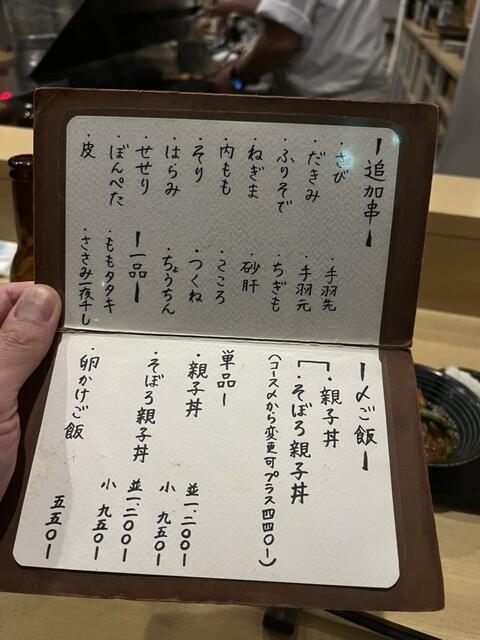 ー追加串ー
・さび
・だきみ
・ふりそで
・ねぎま
・内もも
・そり
・はらみ
・せせり
・ぼんぺた
・皮
・手羽先
・手羽元
・ちぎも
砂肝
・こころ
・つくね
・ちょうちん
ー一品ー
・ももタタキ
・ささみ一夜干し
ー〆ご飯ー
・親子丼
・そぼろ親子丼
(コース〆から変更可プラス四四〇ー)
単品ー
・親子丼 並一、二〇〇ー
小 九五〇ー
・そぼろ親子丼 並一、二〇〇ー
小 九五〇ー
・卵かけご飯 五五〇ー